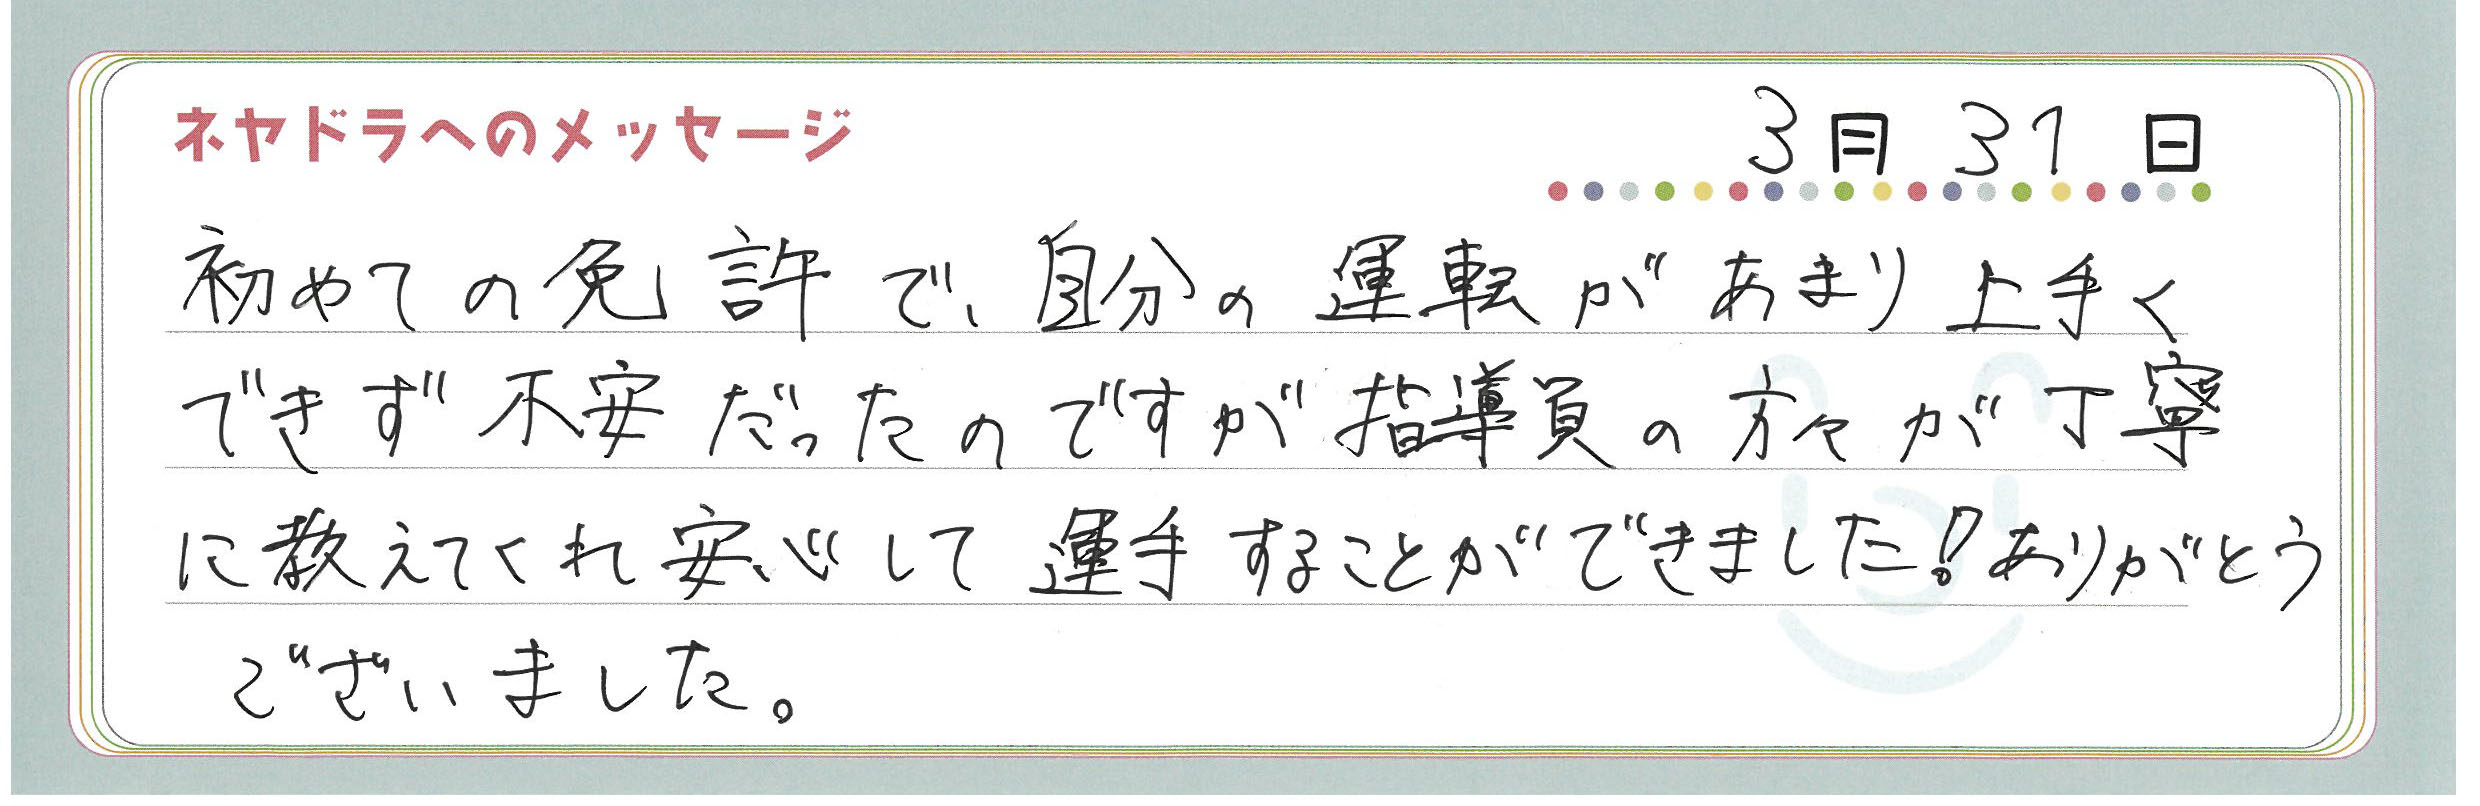 ネヤドラへのメッセージ
3月31日
初めての免許で、自分の運転があまり上手く
できず不安だったのですが指導員の方々が丁寧
に教えてくれ安心して運手することができました!ありがとう
ございました。